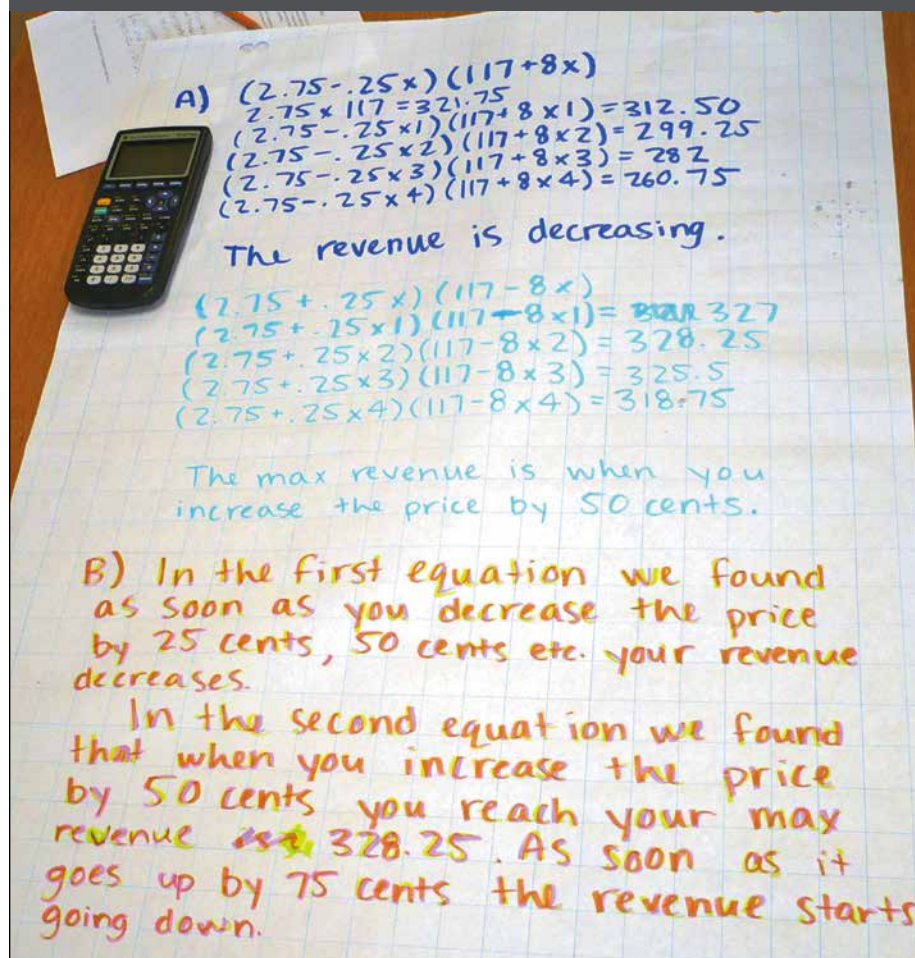 A) (2.75-.25x)(117+8x)
2.75 x 117 = 321.75
(2.75-.25x1)(117+8x1)=312.50
(2.75-.25x2)(117+8x2)=299.25
(2.75-.25x3)(117+8x3)=282
(2.75-.25x4)(117+8x4)=260.75
The revenue is decreasing.
(2.75+.25x)(117-8x)
(2.75+.25x1)(117-8x1)= 327
(2.75+.25x2)(117-8x2)=328.25
(2.75+.25x3)(117-8x3)=325.5
(2.75+.25x4)(117-8x4)=318.75
The max revenue is when you
increase the price by 50 cents.
B) In the first equation we found
as soon as you decrease the price
by 25 cents, 50 cents etc. your revenue
decreases.
In the second equation we found
that when you increase the price
by 50 cents you reach your max
revenue 328.25. As soon as it
goes up by 75 cents the revenue starts
going down.